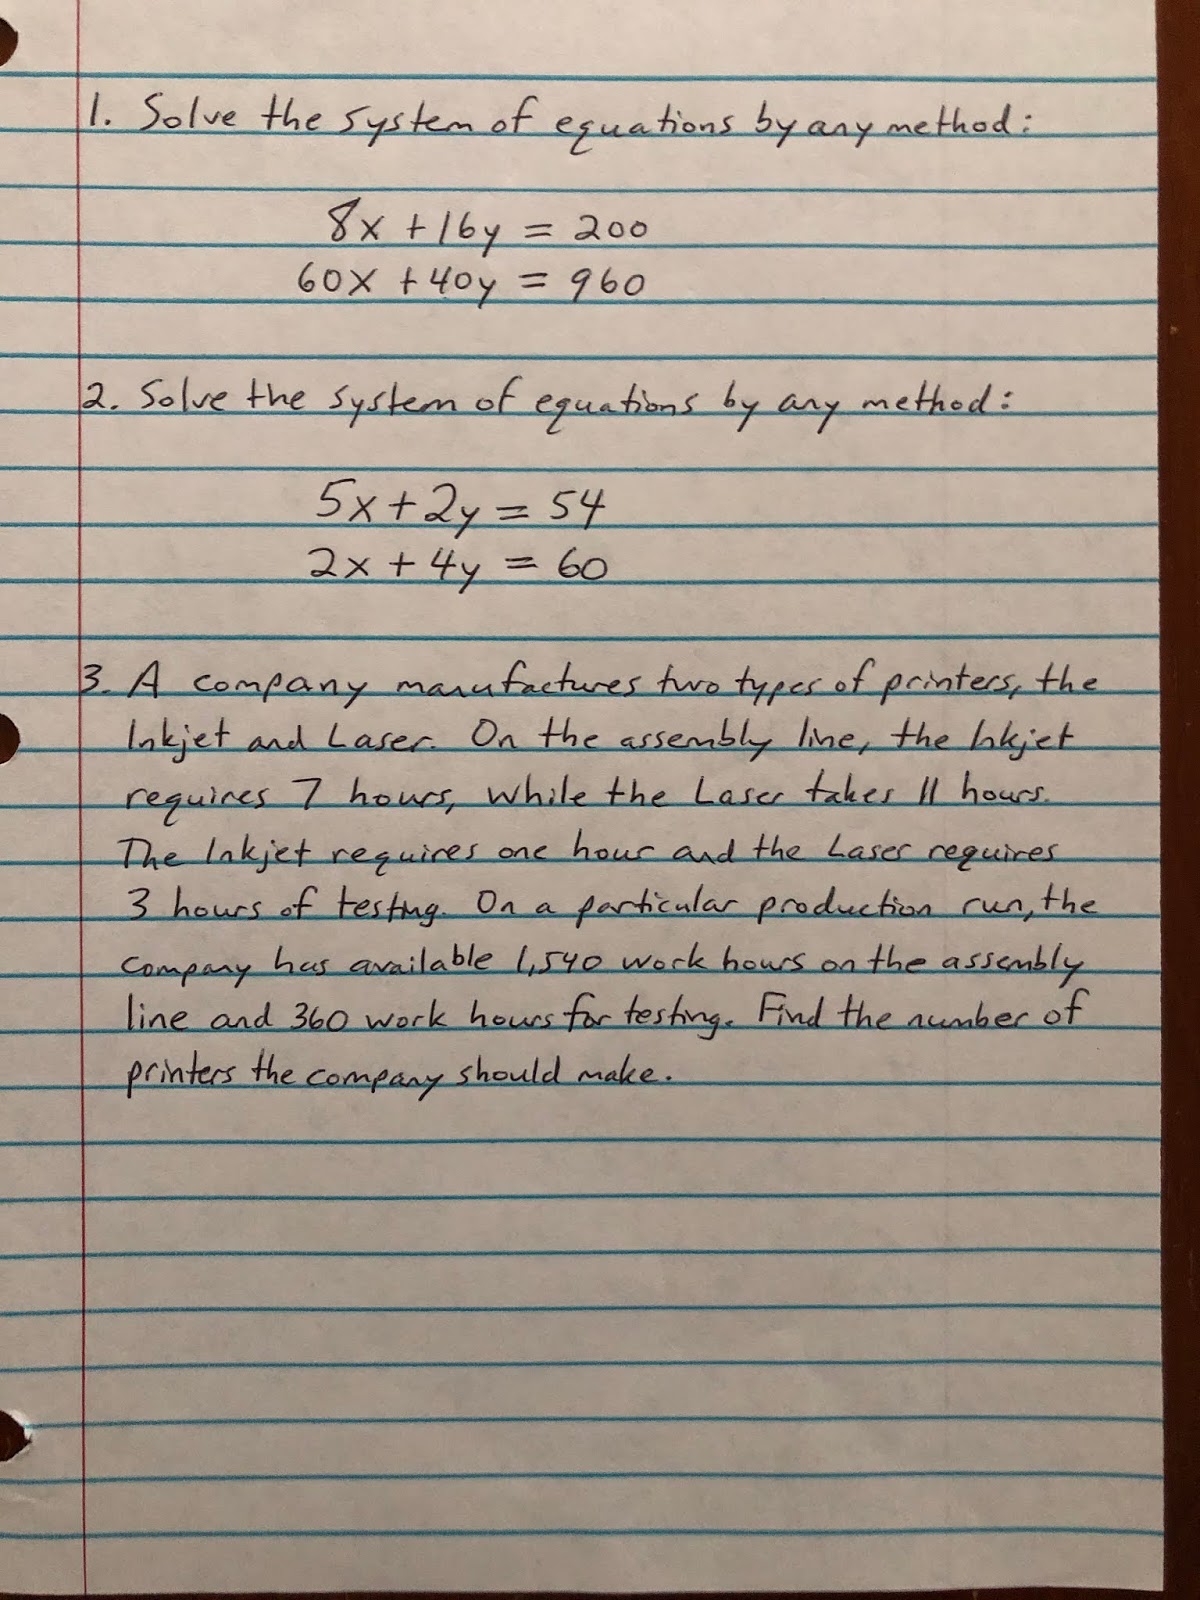 1. Solve the system of equations by any method:
8x + 16y = 200
60x + 40y = 960
2. Solve the system of equations by any method:
5x + 2y = 54
2x + 4y = 60
3. A company manufactures two types of printers, the
Inkjet and Laser. On the assembly line, the Inkjet
requires 7 hours, while the Laser takes 11 hours.
The Inkjet requires one hour and the Laser requires
3 hours of testing. On a particular production run, the
company has available 1,540 work hours on the assembly
line and 360 work hours for testing. Find the number of
printers the company should make.